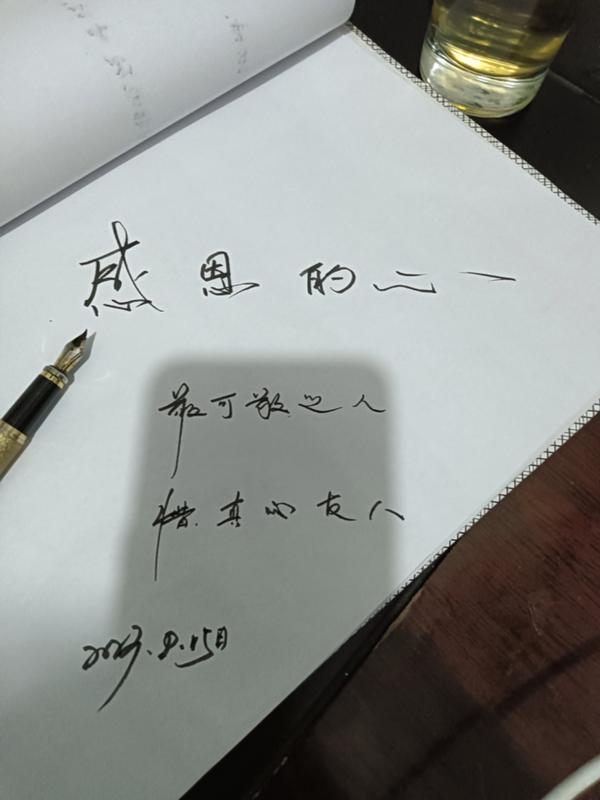 感恩的心一
敬可敬之人
惜真心友人
2023.9.15日